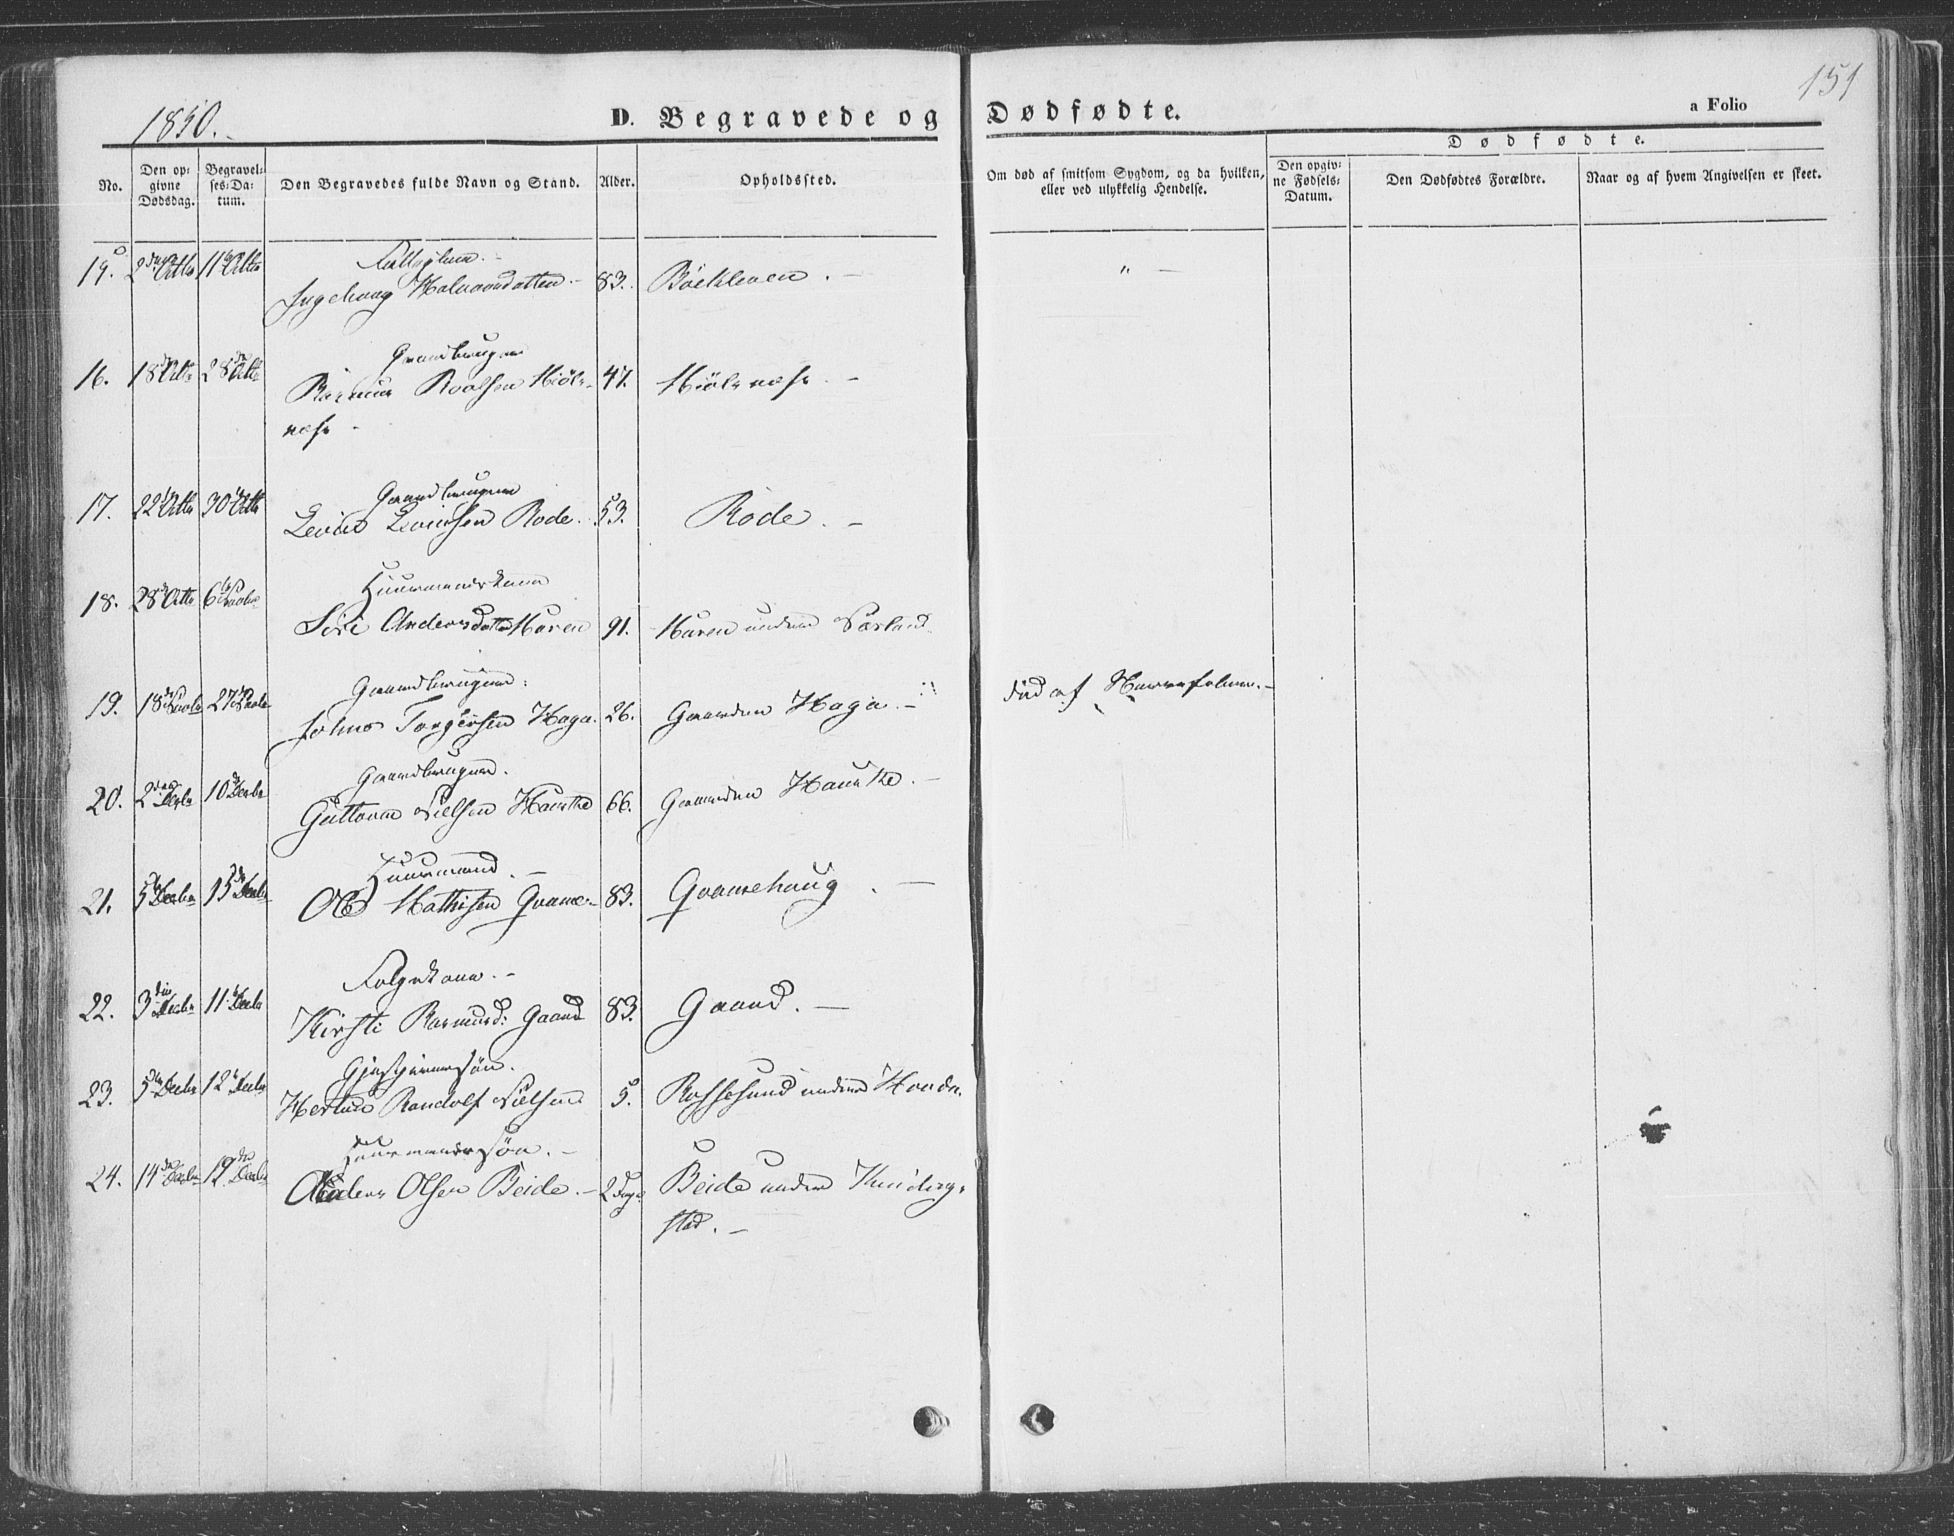 151
1850.
D. Begravede og Dødfødte.
a Folio
No.
Den opgivne Dødsdag.
Begravelses-Datum.
Den Begravedes fulde Navn og Stand.
Alder.
Opholdssted.
Om død af smitsom Sygdom, og da hvilken, eller ved ulykkelig Hendelse.
Dødfødte.
Den opgivne Fødsels-Datum.
Den Dødfødtes Forældre.
Naar og af hvem Angivelsen er skeet.
15. 2den Octbr 11te Octbr
Ingeborg Halvorsdatter. 83.
16. 18de Octbr 28de Octbr Gaardbruger
Rasmus Roalsen Hiøls- 47. Hiølsnæs.
næs
17. 22de Octbr 30te Octbr Gaardbruger
Levine Levinsen Rode. 53. Rode.
18. 28de Octbr 6te Novbr Huusmandskone
Siri Andersdatter Haven 91. Haven under
19. 18de Novbr 27de Novbr Gaardbruger.
Johnes Torgersen Haga. 26. Gaarden Haga. død af Nervefeber.
20. 2den Decbr 10de Decbr Gaardbruger.
Guttorm Nielsen 66. Gaarden
21. 5te Decbr 13de Decbr Huusmand.
Ole Mathisen 83.
22. 3die Decbr 11te Decbr Folgekone.
Kirsti Rasmusd: Gaard 83. Gaard.
23. 5te Decbr 12te Decbr Gjestgiversøn.
Randolf Nielsen 5. Rossesund under
24. 14de Decbr 19de Decbr Huusmandssøn.
Anders Olsen Beide. 2 Dage Beide under
stad.